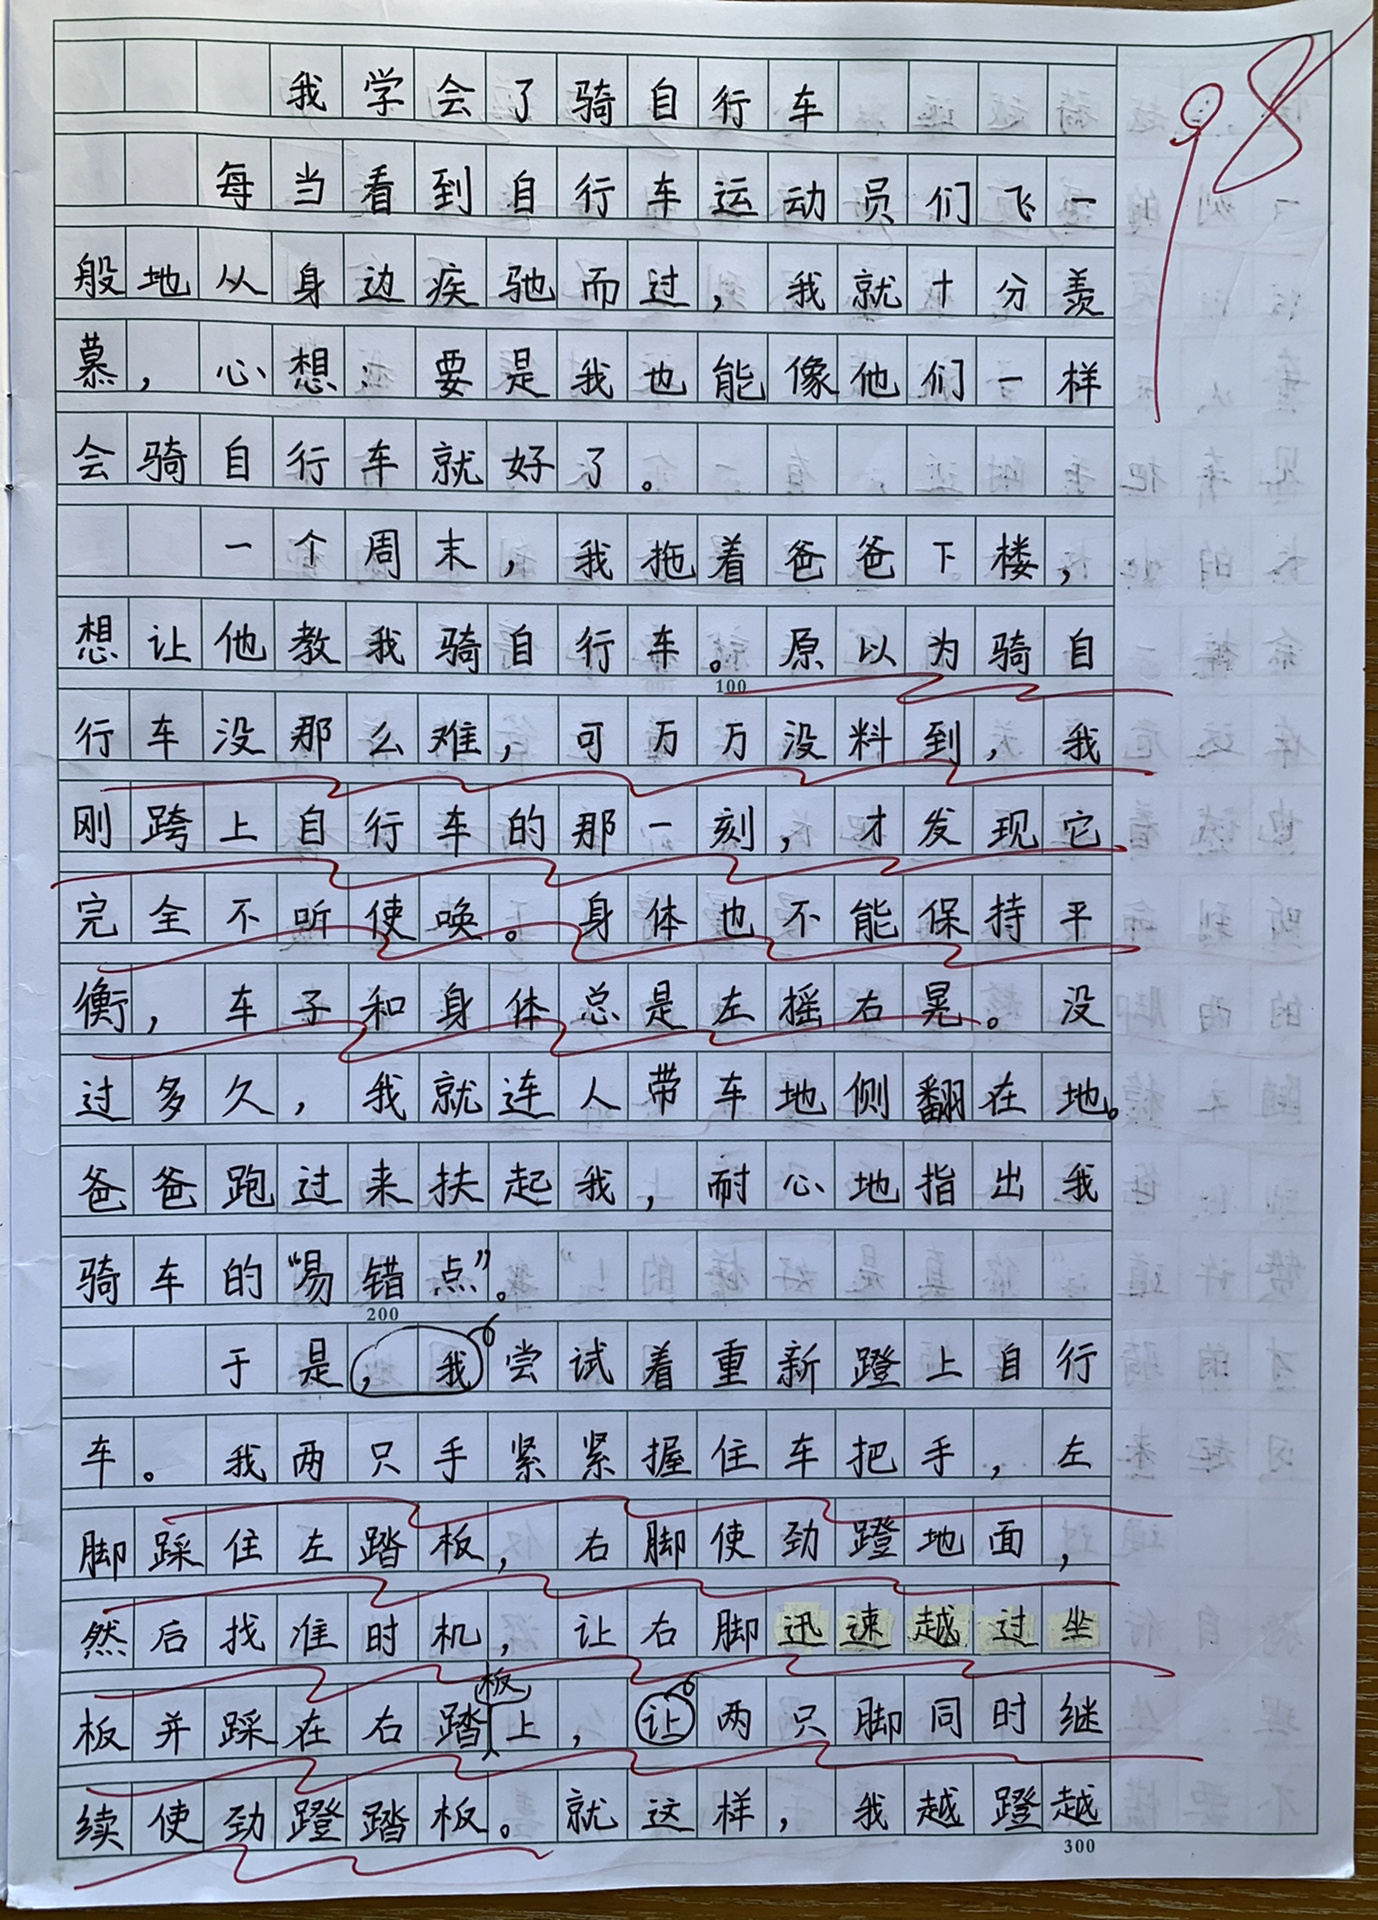 98
我学会了骑自行车
每当看到自行车运动员们飞一
般地从身边疾驰而过，我就十分羡
慕，心想：要是我也能像他们一样
会骑自行车就好了。
一个周末，我拖着爸爸下楼，
想让他教我骑自行车。原以为骑自
100
行车没那么难，可万万没料到，我
刚跨上自行车的那一刻，才发现它
完全不听使唤。身体也不能保持平
衡，车子和身体总是左摇右晃。没
过多久，我就连人带车地侧翻在地。
爸爸跑过来扶起我，耐心地指出我
骑车的“易错点”。
200
于是，我尝试着重新蹬上自行
车。我两只手紧紧握住车把手，左
脚踩住左踏板，右脚使劲蹬地面，
然后找准时机，让右脚迅速越过坐
板并踩在右踏板上，让两只脚同时继
续使劲蹬踏板。就这样，我越蹬越
300